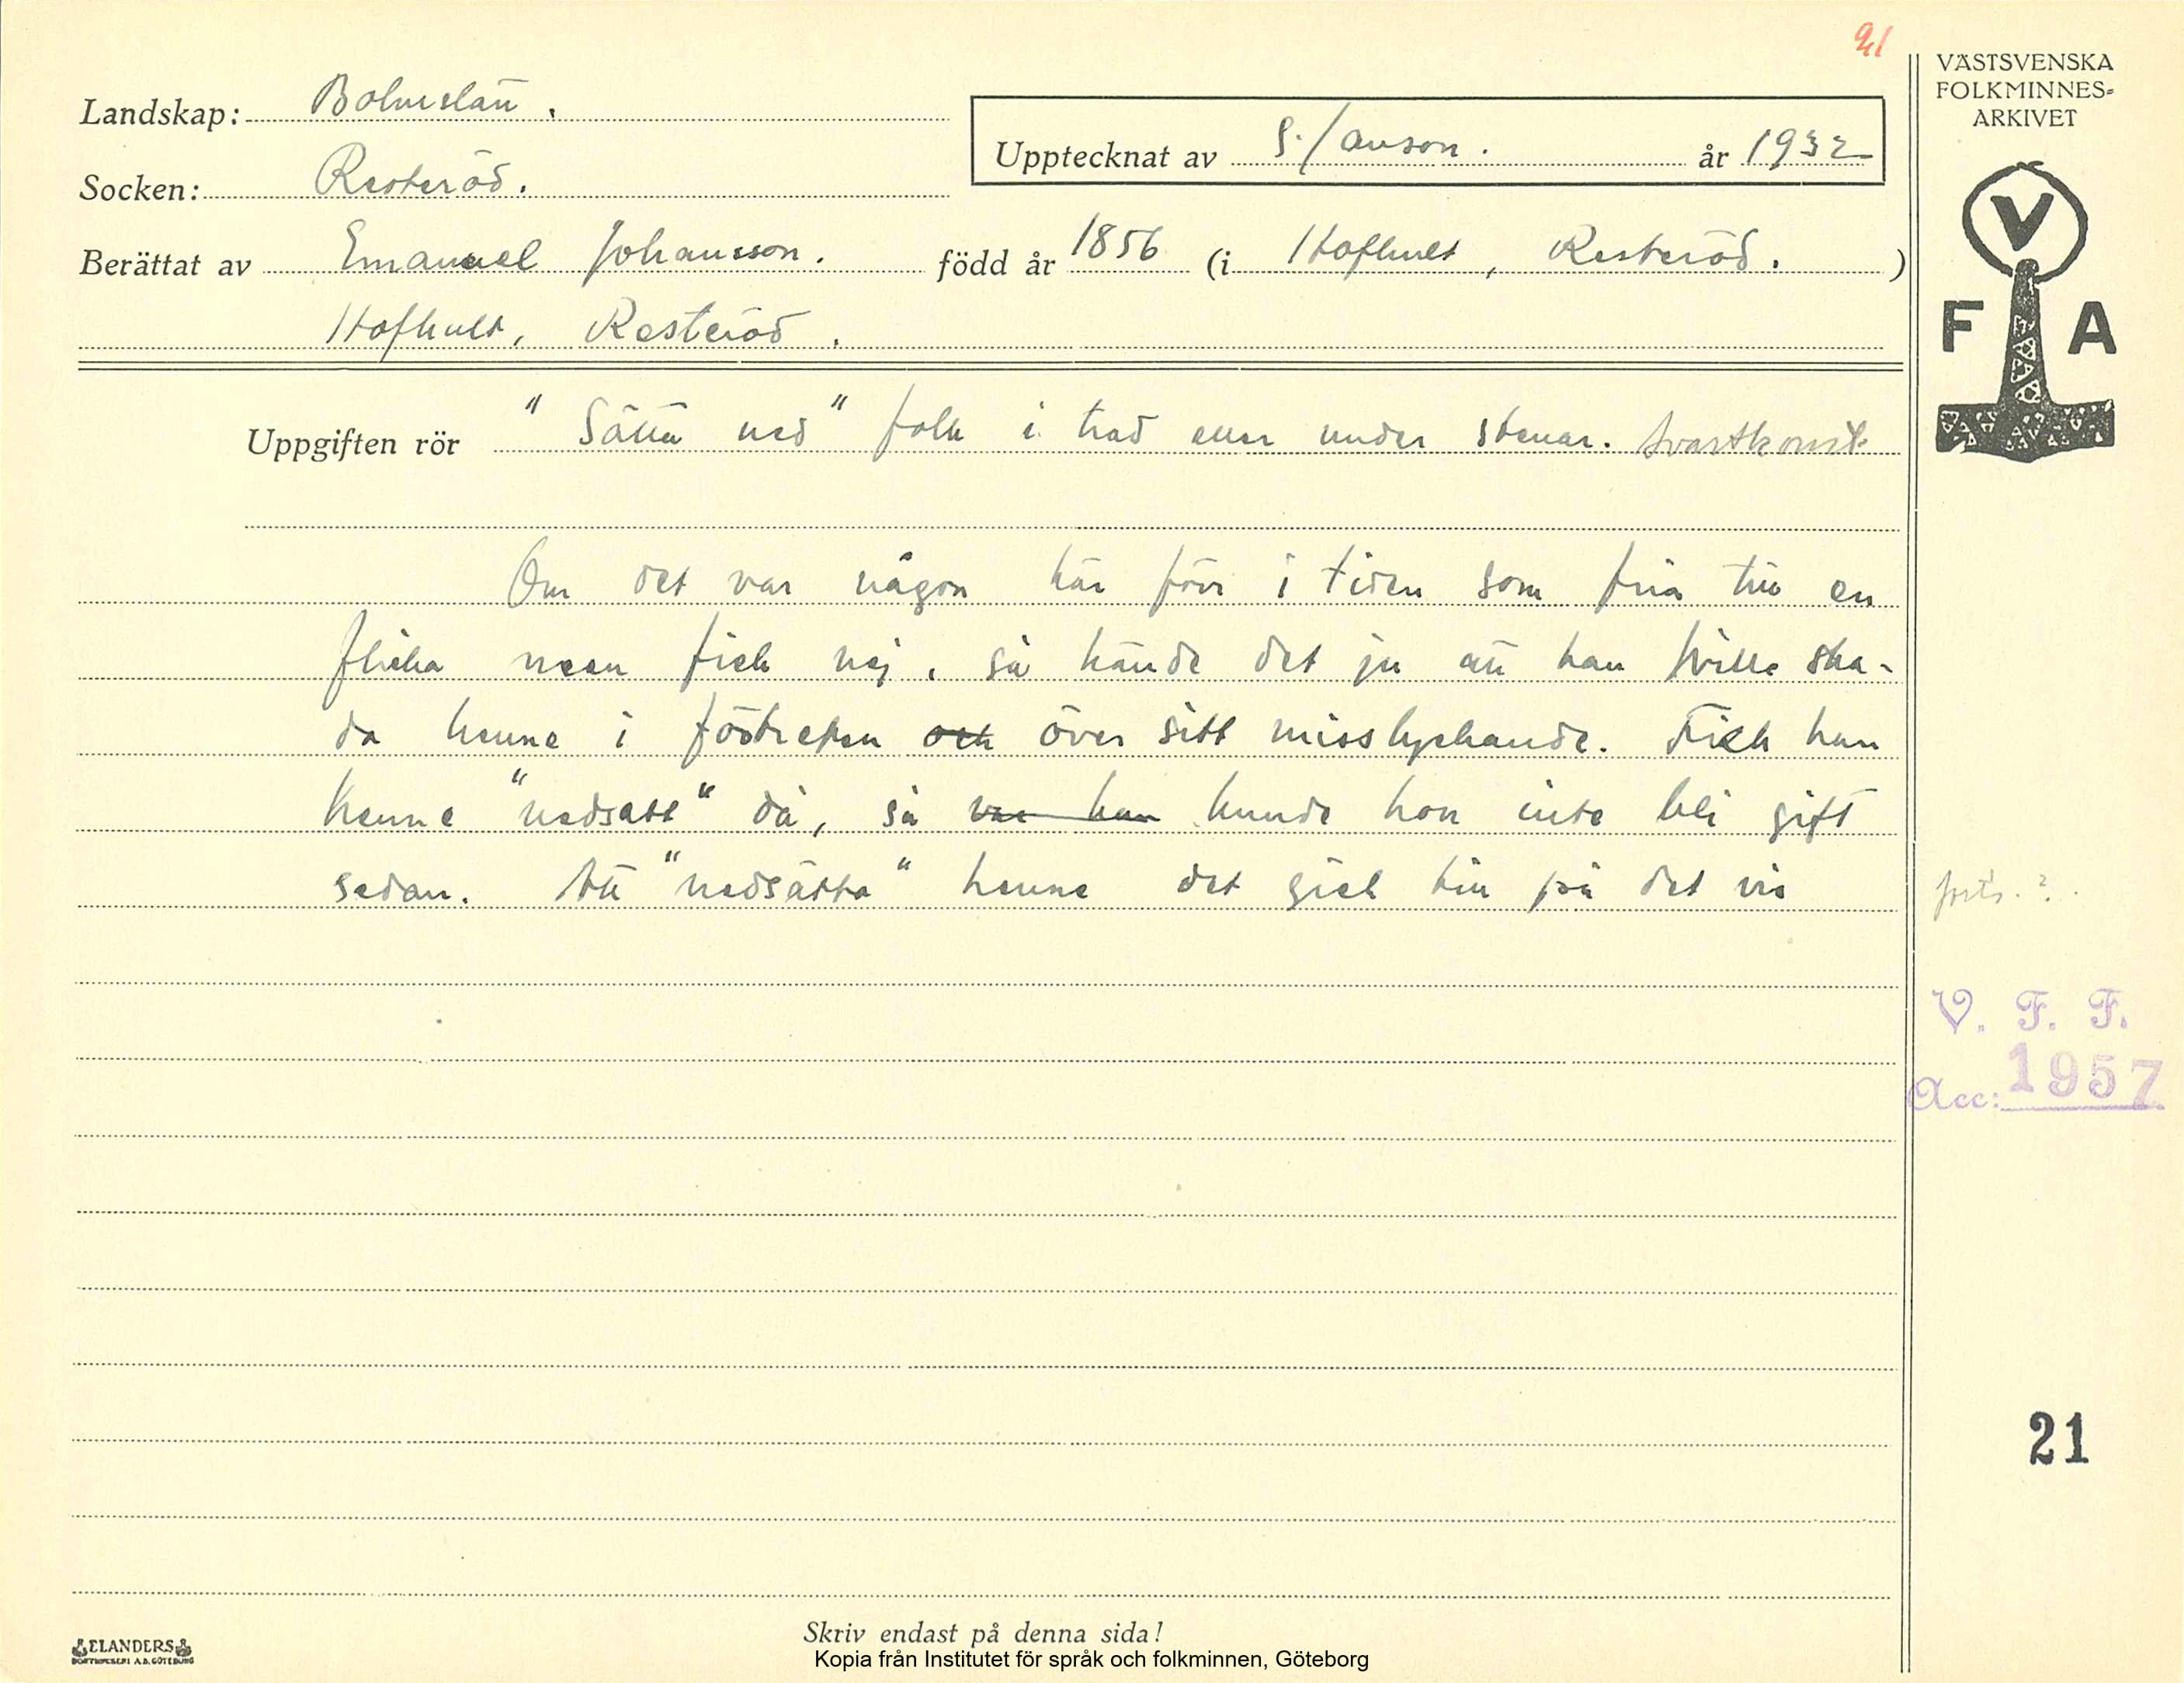 91
VÄSTSVENSKA
FOLKMINNES-
ARKIVET
Landskap: Bohuslän.
Upptecknat av S. Janson. år 1932
Socken: Resteröd.
Berättat av Emanuel Johansson. född år 1856 (i Hafhult, Resteröd.)
Hafhult, Resteröd.
V
F A
Uppgiften rör "Sätta ned" folk i träd eller under stenar. Svartkonst
Om det var någon här förr i tiden som fria till en
flicka men fick nej, så hände det ju att han ville ska-
da henne i förtreten och över sitt misslyckande. Fick han
henne "nedsatt" då, så var han kunde hon inte bli gift
sedan. Att "nedsätta" henne det gick till på det vis
forts. ?.
V. F. F.
Acc: 1957
21
Skriv endast på denna sida!
ELANDERS
BOKTRYCKERI A.B. GÖTEBORG
Kopia från Institutet för språk och folkminnen, Göteborg